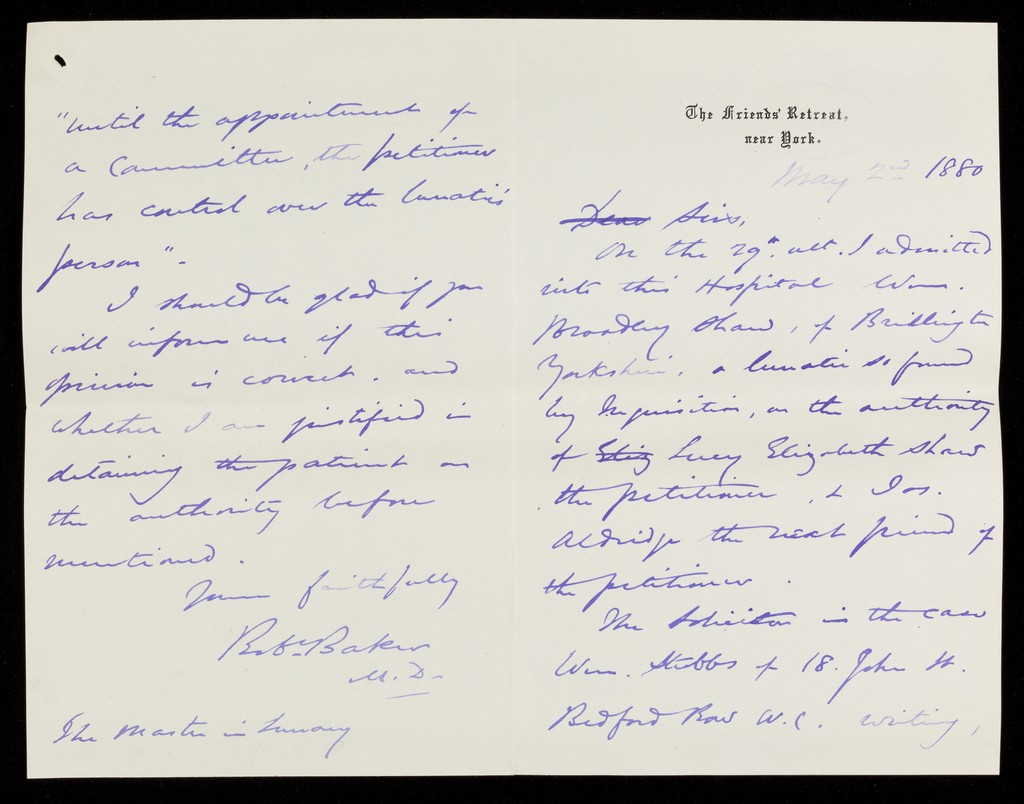 The Friends' Retreat,
near York.
May 2nd 1880
Dear Sirs,
On the 29th ult. I admitted
into this Hospital Wm.
Broadley Shaw, of Bridlington
Yorkshire, a lunatic so found
by Inquisition, on the authority
of Eliz Lucy Elizabeth Shaw
the petitioner, & Jos.
Aldridge the next friend of
the petitioner.
The Solicitor in the case
Wm. Stubbs of 18. John St.
Bedford Row W.C. writing,
"until the appointment of
a Committee, the petitioner
has control over the lunatic's
person"-
I should be glad if you
will inform me if this
opinion is correct, and
whether I am justified in
detaining the patient on
the authority before
mentioned.
Yours faithfully
Robt. Baker
M.D-
The Master in Lunacy